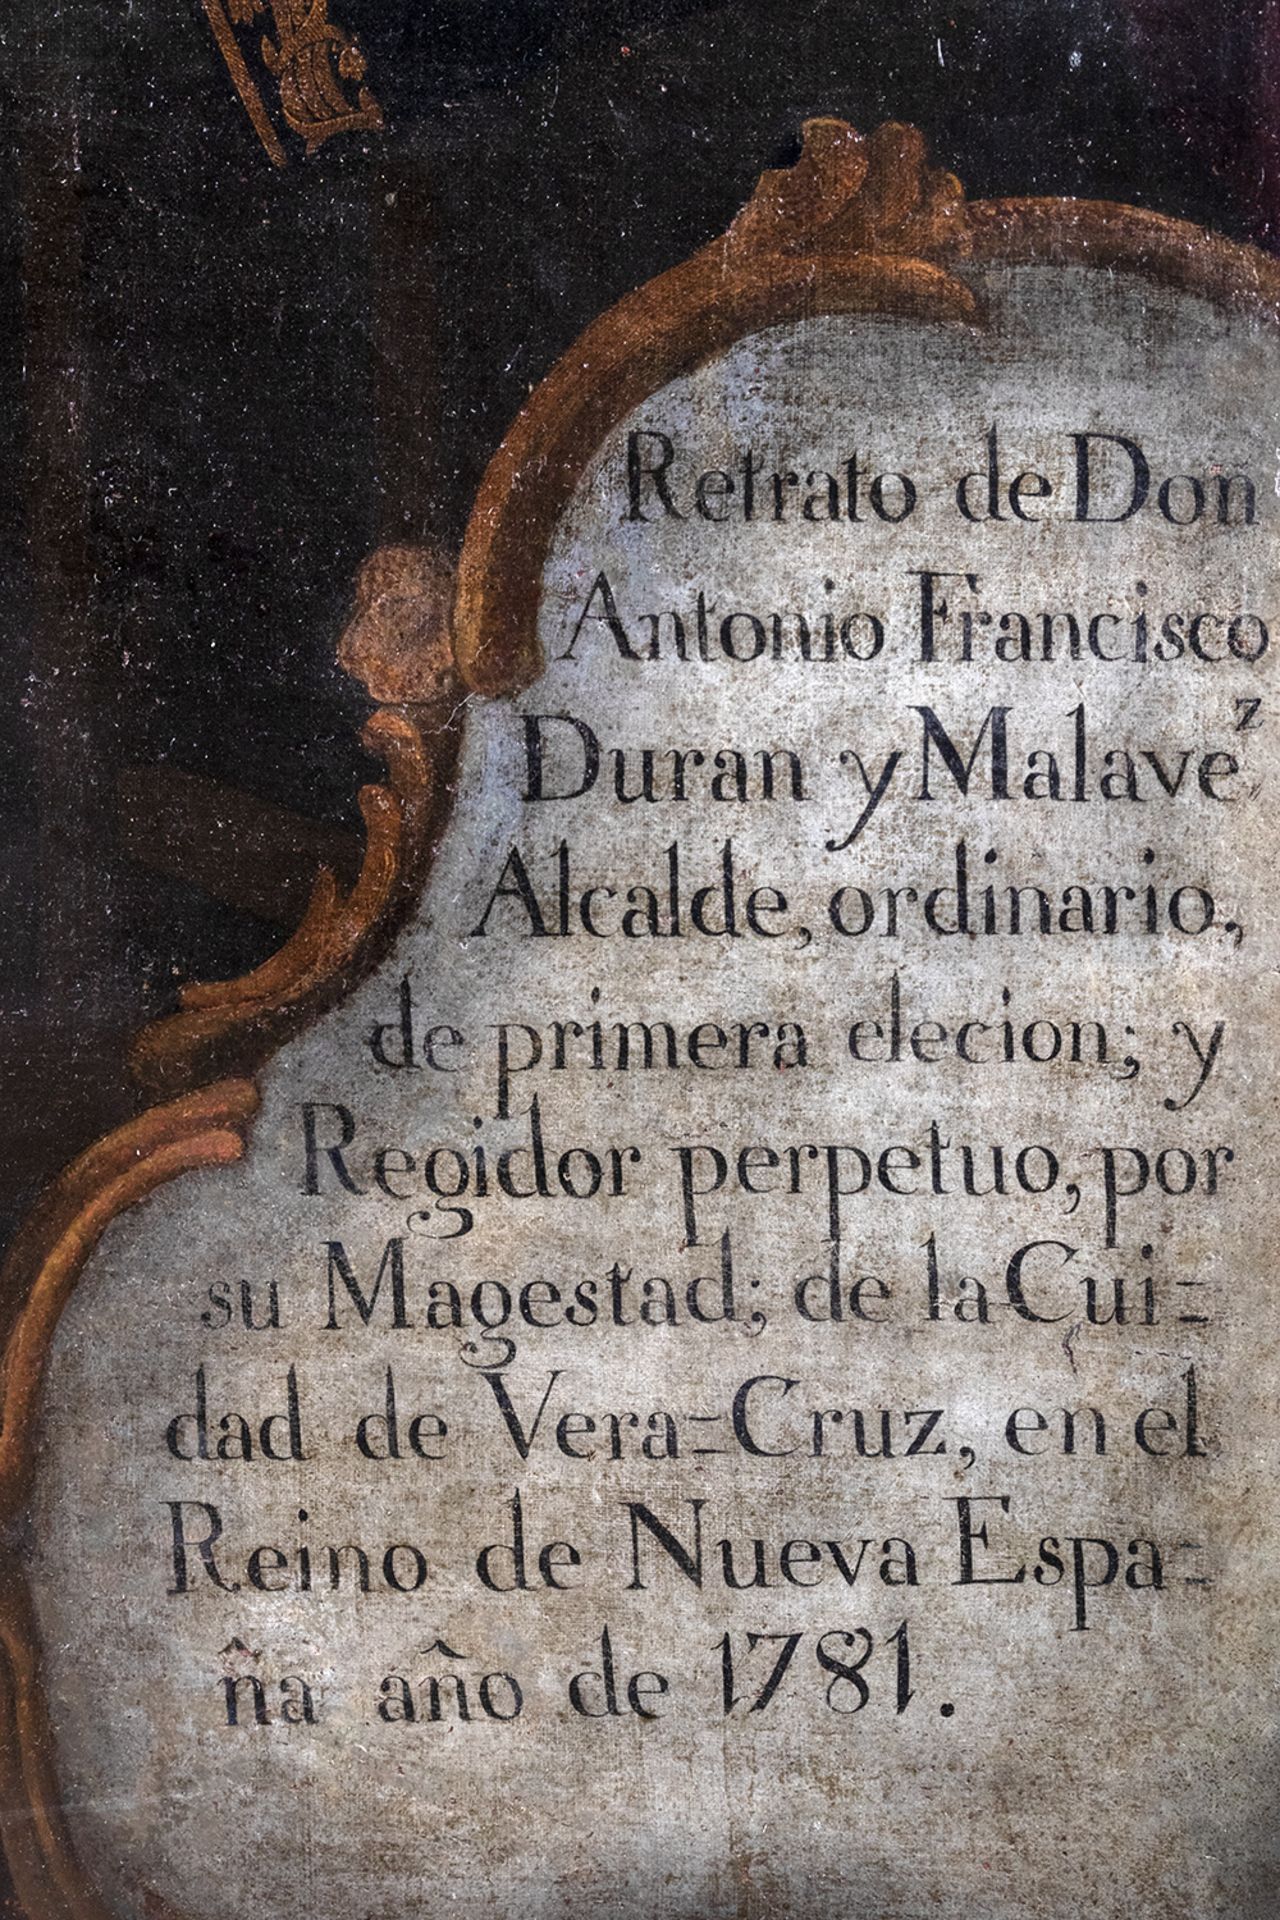 Retrato de Doñ
Antonio Francisco
Duran y Malaveᶻ,
Alcalde, ordinario,
de primera elecion; y
Regidor perpetuo, por
su Magestad; de la Cui=
dad de Vera=Cruz, en el
Reino de Nueva Espa=
ña año de 1781.